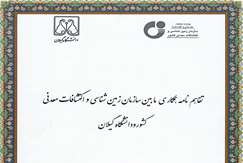 دانشگاه گیلان
تفاهم نامه همکاری مابین سازمان زمین شناسی و اکتشافات معدنی
کشور و دانشگاه گیلان